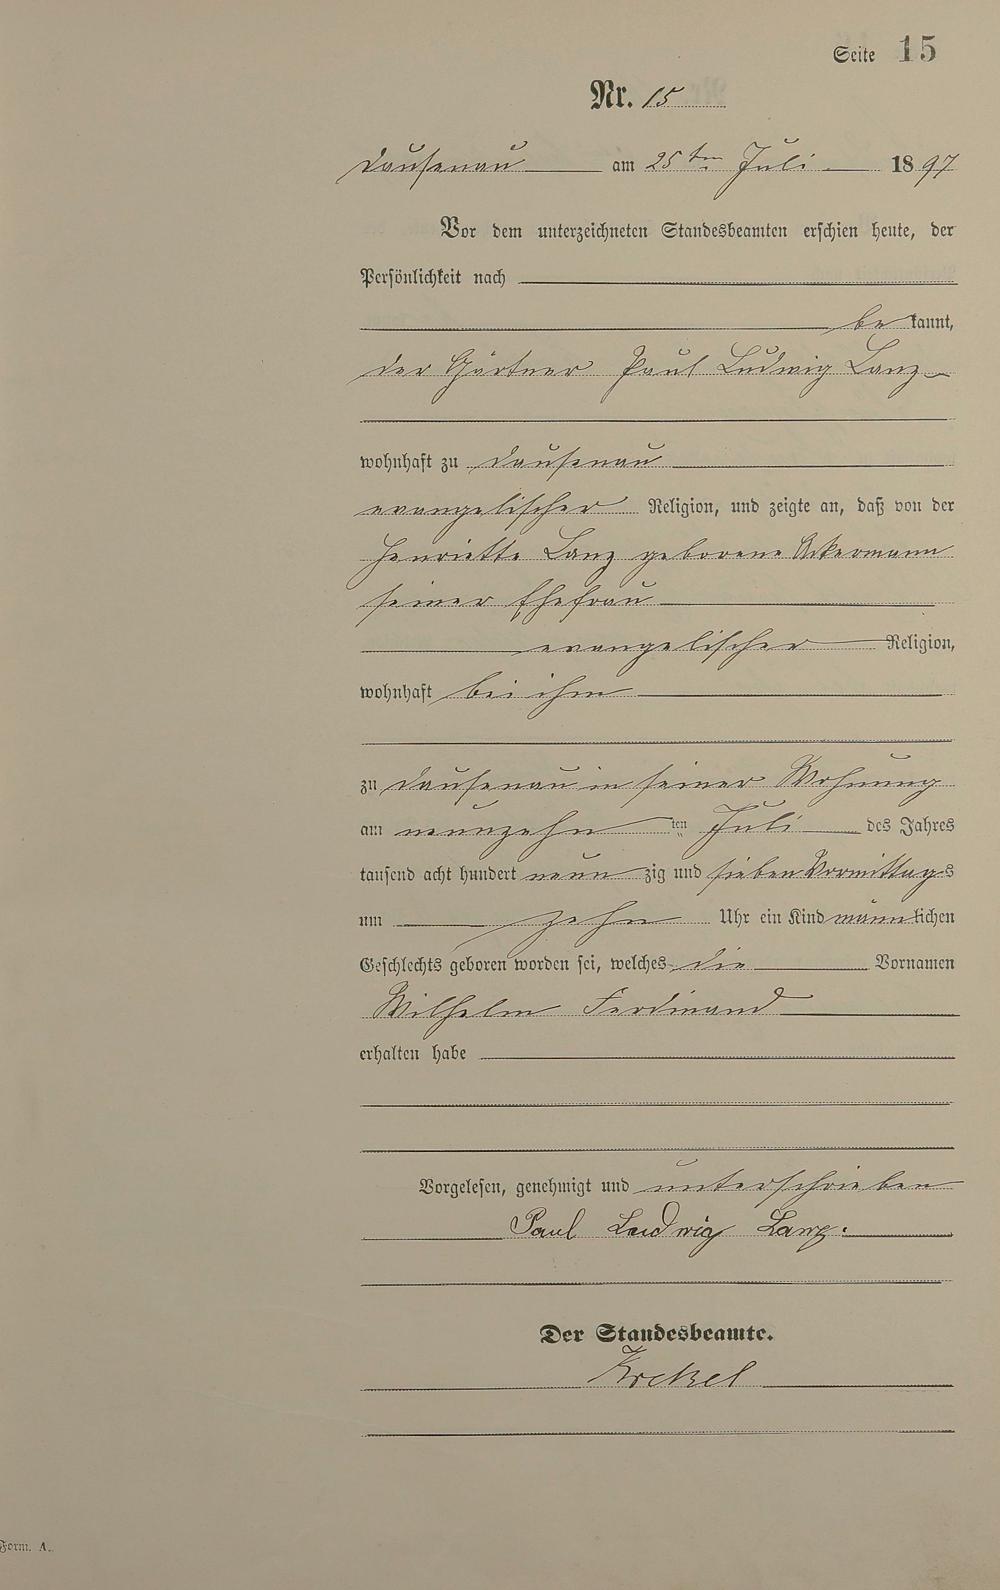 Seite 15
Nr. 15
Dausenau am 25ten Juli 1897
Vor dem unterzeichneten Standesbeamten erschien heute, der
Persönlichkeit nach
bekannt,
der Gärtner Paul Ludwig Lanz
wohnhaft zu Dausenau
evangelischer Religion, und zeigte an, daß von der
Henriette Lanz geborene Ackermann
seiner Ehefrau
evangelischer Religion,
wohnhaft bei ihm
zu Dausenau in seiner Wohnung
am neunzehnten Juli des Jahres
tausend acht hundert neunzig und sieben Vormittags
um zehn Uhr ein Kind männlichen
Geschlechts geboren worden sei, welches die Vornamen
Wilhelm Ferdinand
erhalten habe
Vorgelesen, genehmigt und unterschrieben
Paul Ludwig Lanz.
Der Standesbeamte.
Krekel
Form. A.